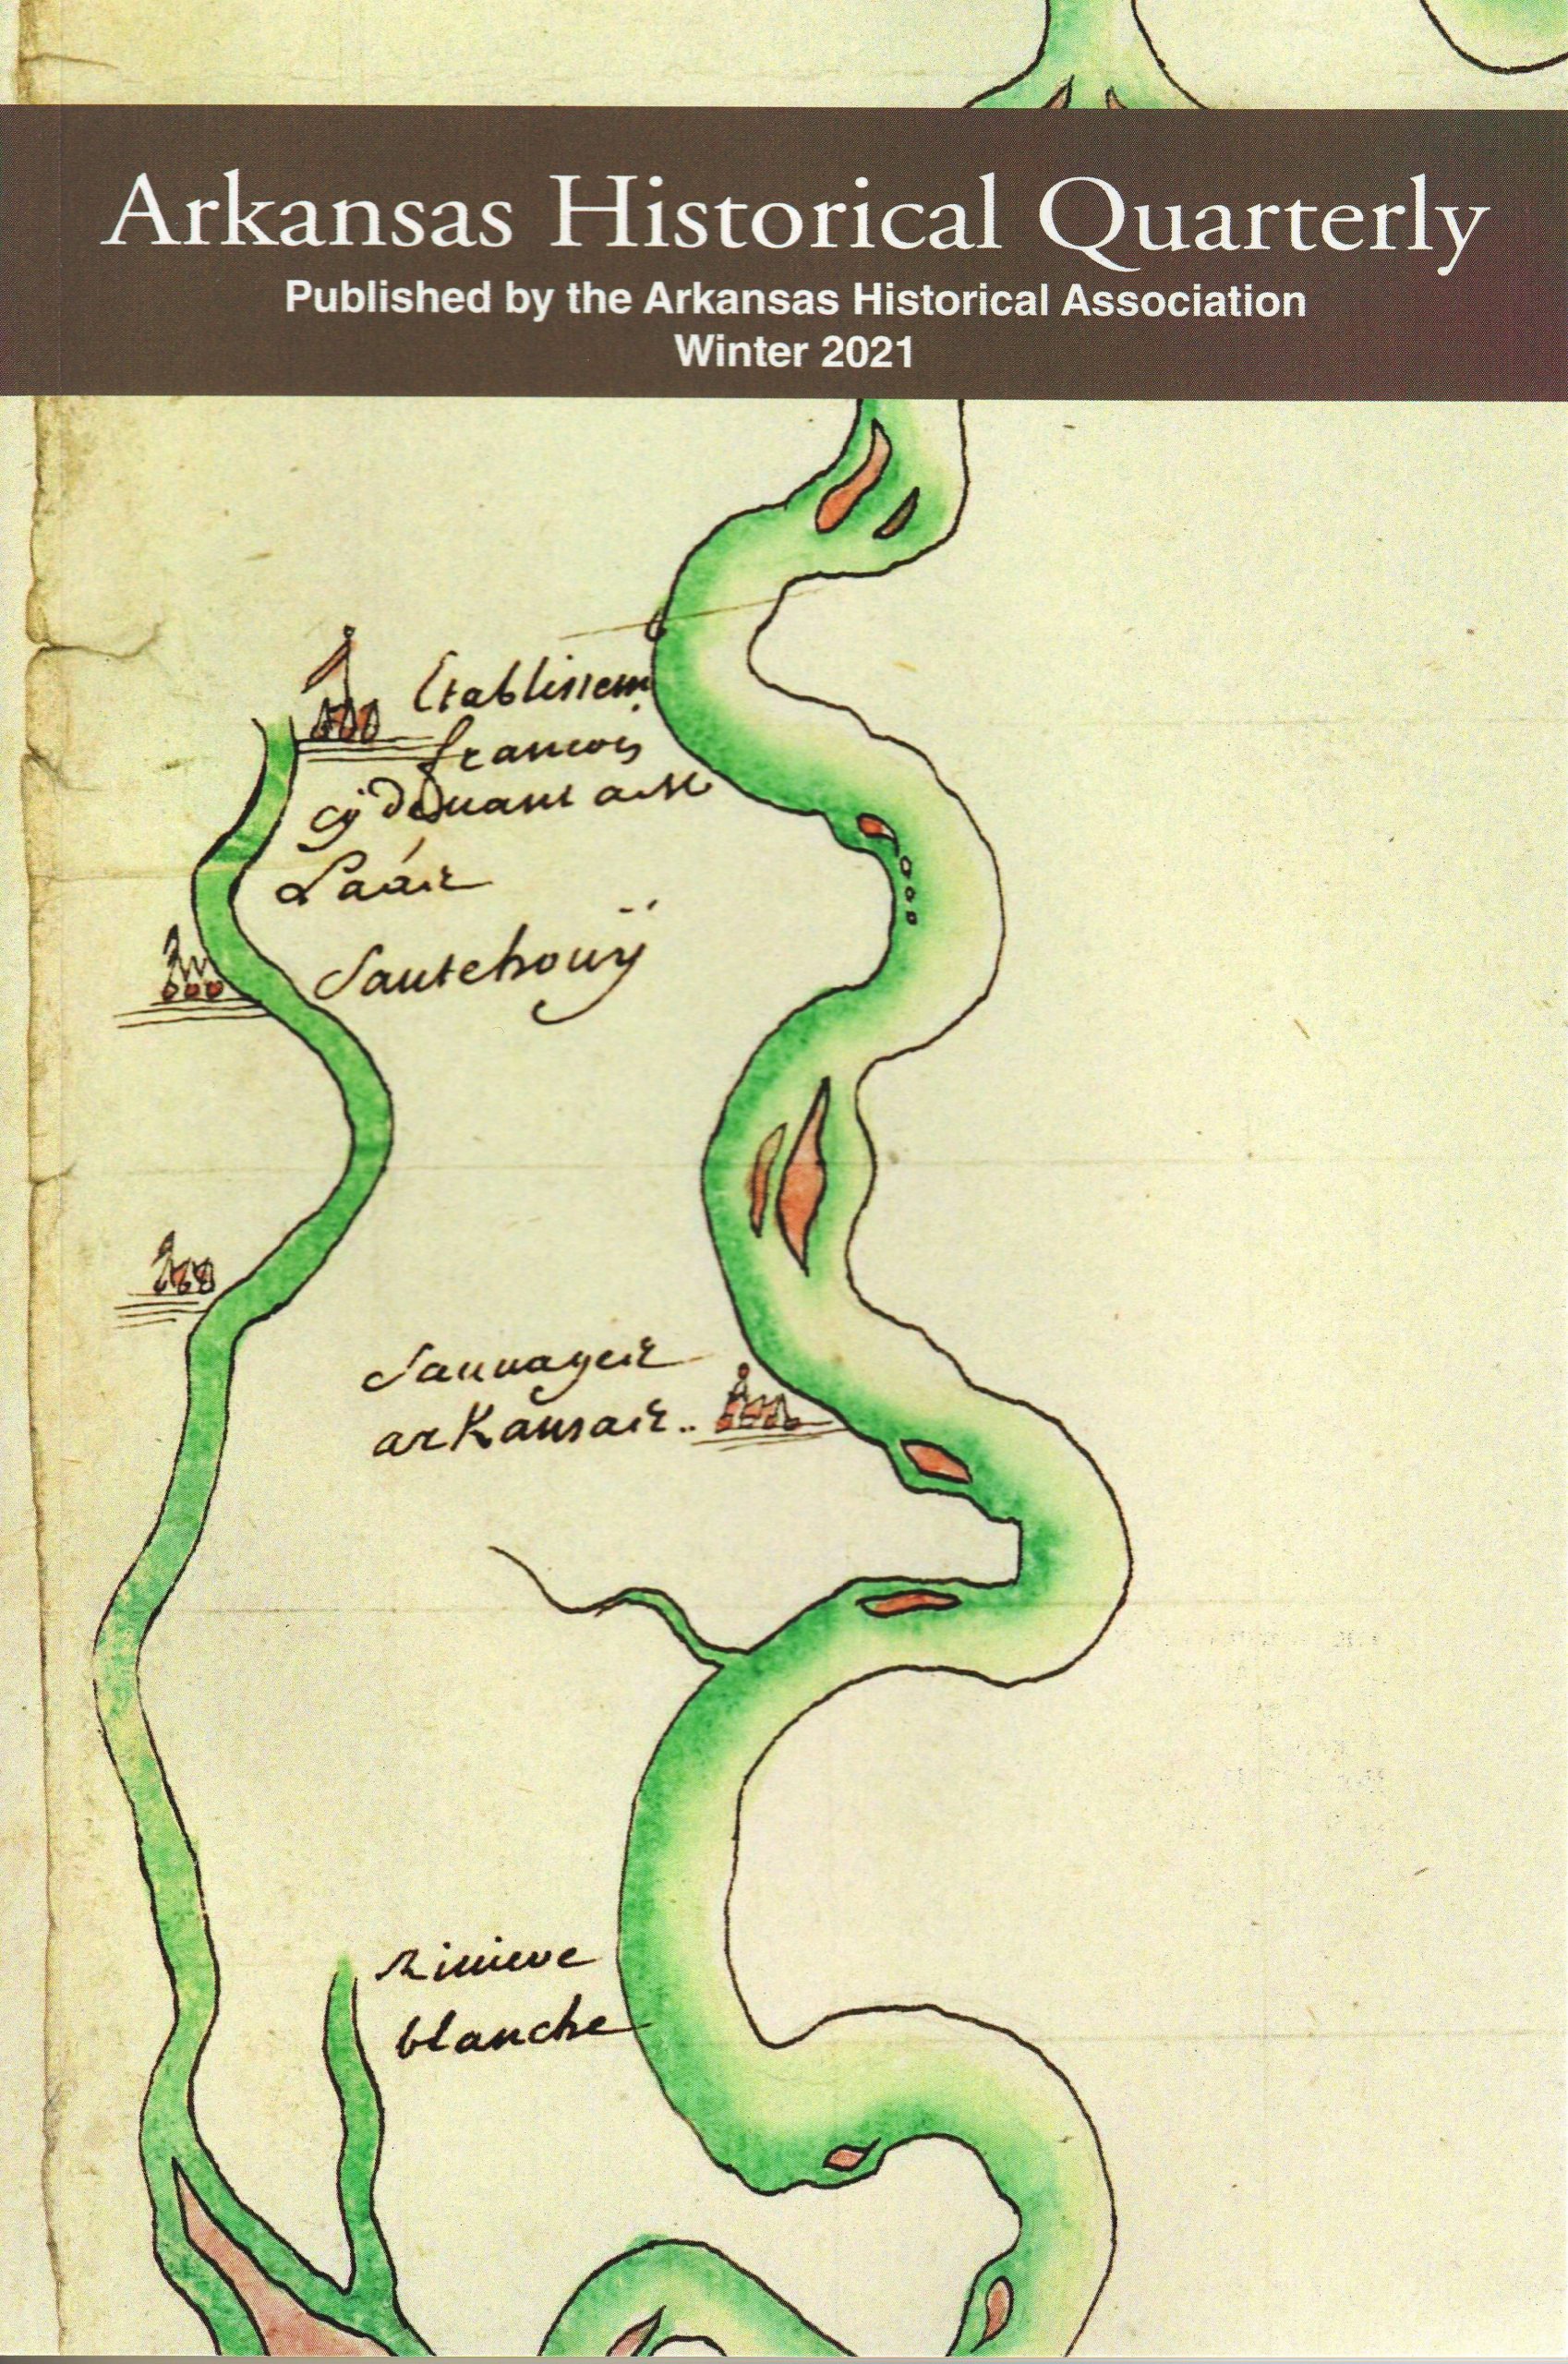 Arkansas Historical Quarterly
Published by the Arkansas Historical Association
Winter 2021
Etablissem
francois
cÿ deuant a
Sautehouÿ
Sauuages
arKansas..
Riuiere
blanche